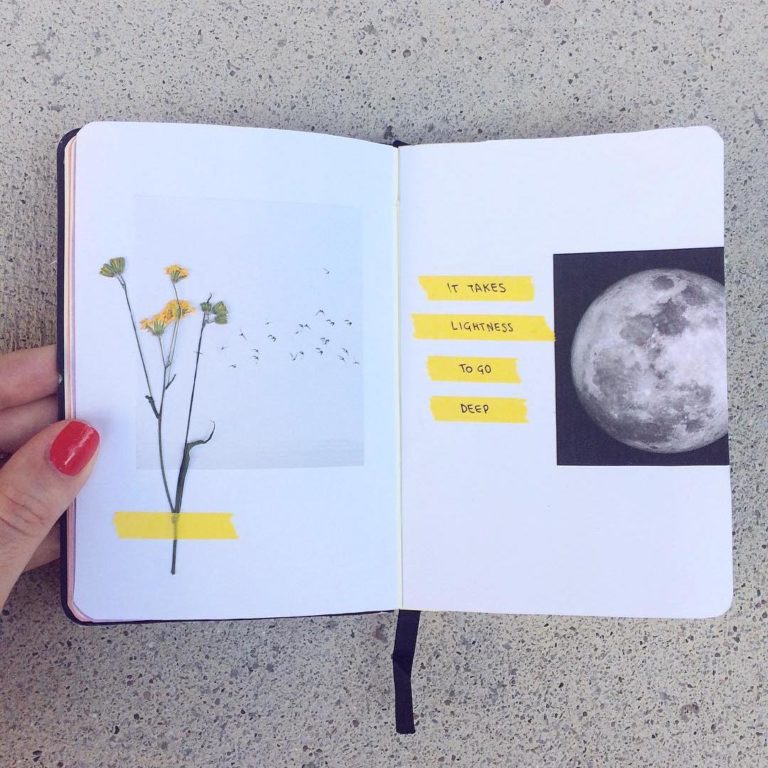 IT TAKES
LIGHTNESS
TO GO
DEEP